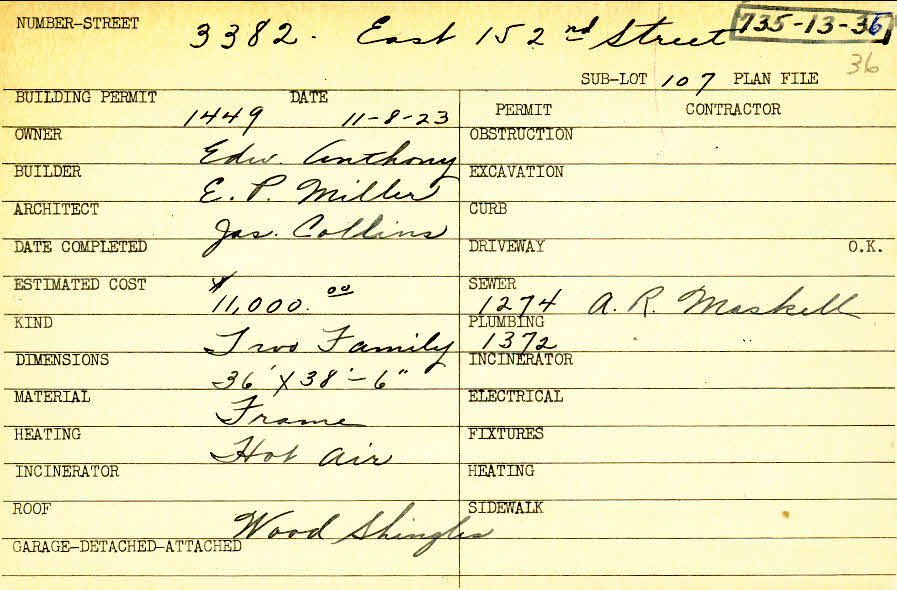 NUMBER-STREET 3382. East 152nd Street 735-13-36
36
SUB-LOT 107 PLAN FILE
BUILDING PERMIT DATE PERMIT CONTRACTOR
1449 11-8-23
OWNER OBSTRUCTION
Edw. Anthony
BUILDER EXCAVATION
E. P. Miller
ARCHITECT CURB
Jas. Collins
DATE COMPLETED DRIVEWAY O.K.
ESTIMATED COST SEWER
$11,000.00 1274 A. R. Maskell
KIND PLUMBING
Two Family 1372
DIMENSIONS INCINERATOR
36' X 38'-6"
MATERIAL ELECTRICAL
Frame
HEATING FIXTURES
Hot Air
INCINERATOR HEATING
ROOF SIDEWALK
Wood Shingles
GARAGE-DETACHED-ATTACHED